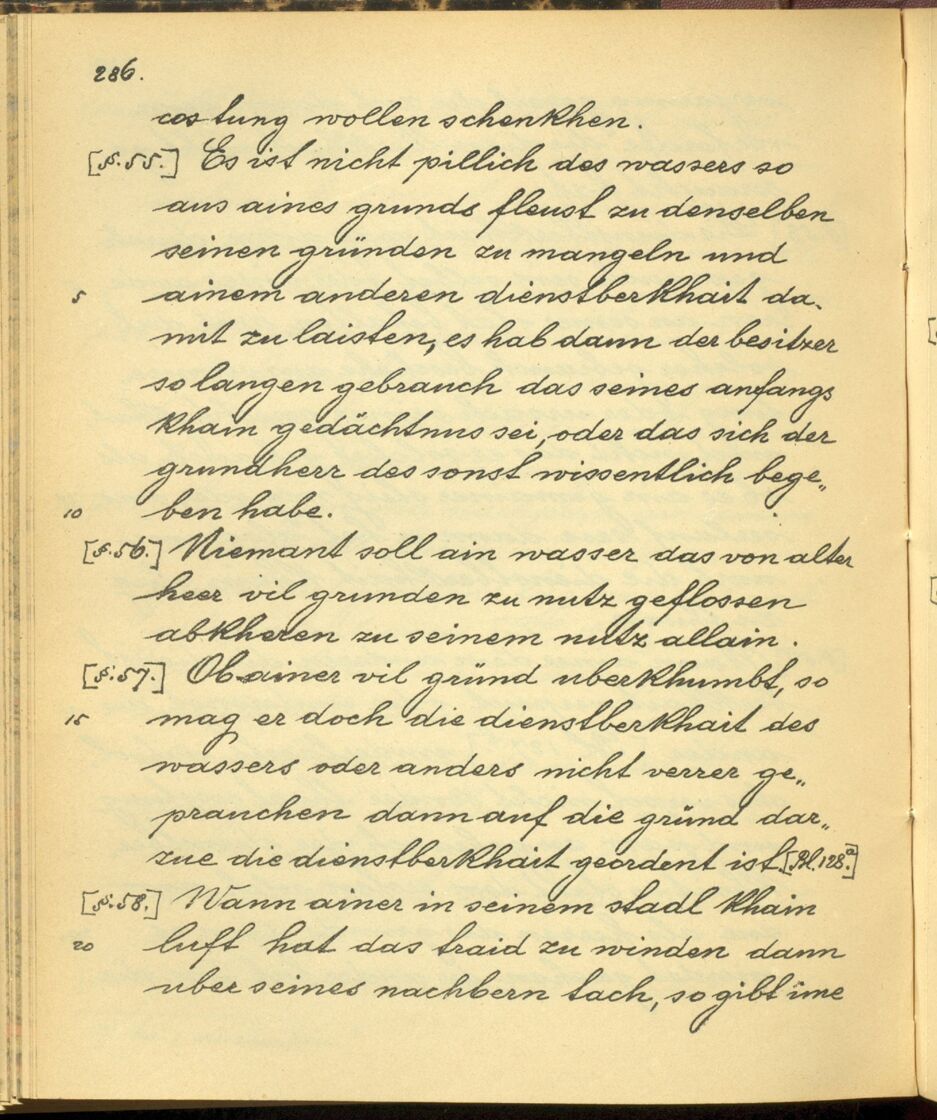 286.
costung wollen schenkhen.
[§.55.] Es ist nicht pillich des wassers so
aus aines grunds fleust zu denselben
seinen gründen zu mangeln und
5 ainem anderen dienstberkhait da-
mit zu laisten, es hab dann der besitzer
so langen gebrauch das seines anfangs
khain gedächtnus sei, oder das sich der
grundherr des sonst wissentlich bege„
10 ben habe.
[§.56.] Niemant soll ain wasser das von alter
heer vil grunden zu nutz geflossen
abkheren zu seinem nutz allain.
[§.57.] Ob ainer vil gründ uberkhumbt, so
15 mag er doch die dienstberkhait des
wassers oder anders nicht verrer ge„
prauchen dann auf die gründ dar„
zue die dienstberkhait geordent ist. [Bl. 128.a]
[§.58.] Wann ainer in seinem stadl khain
20 luft hat das traid zu winden dann
uber seines nachbern tach, so gibt ime